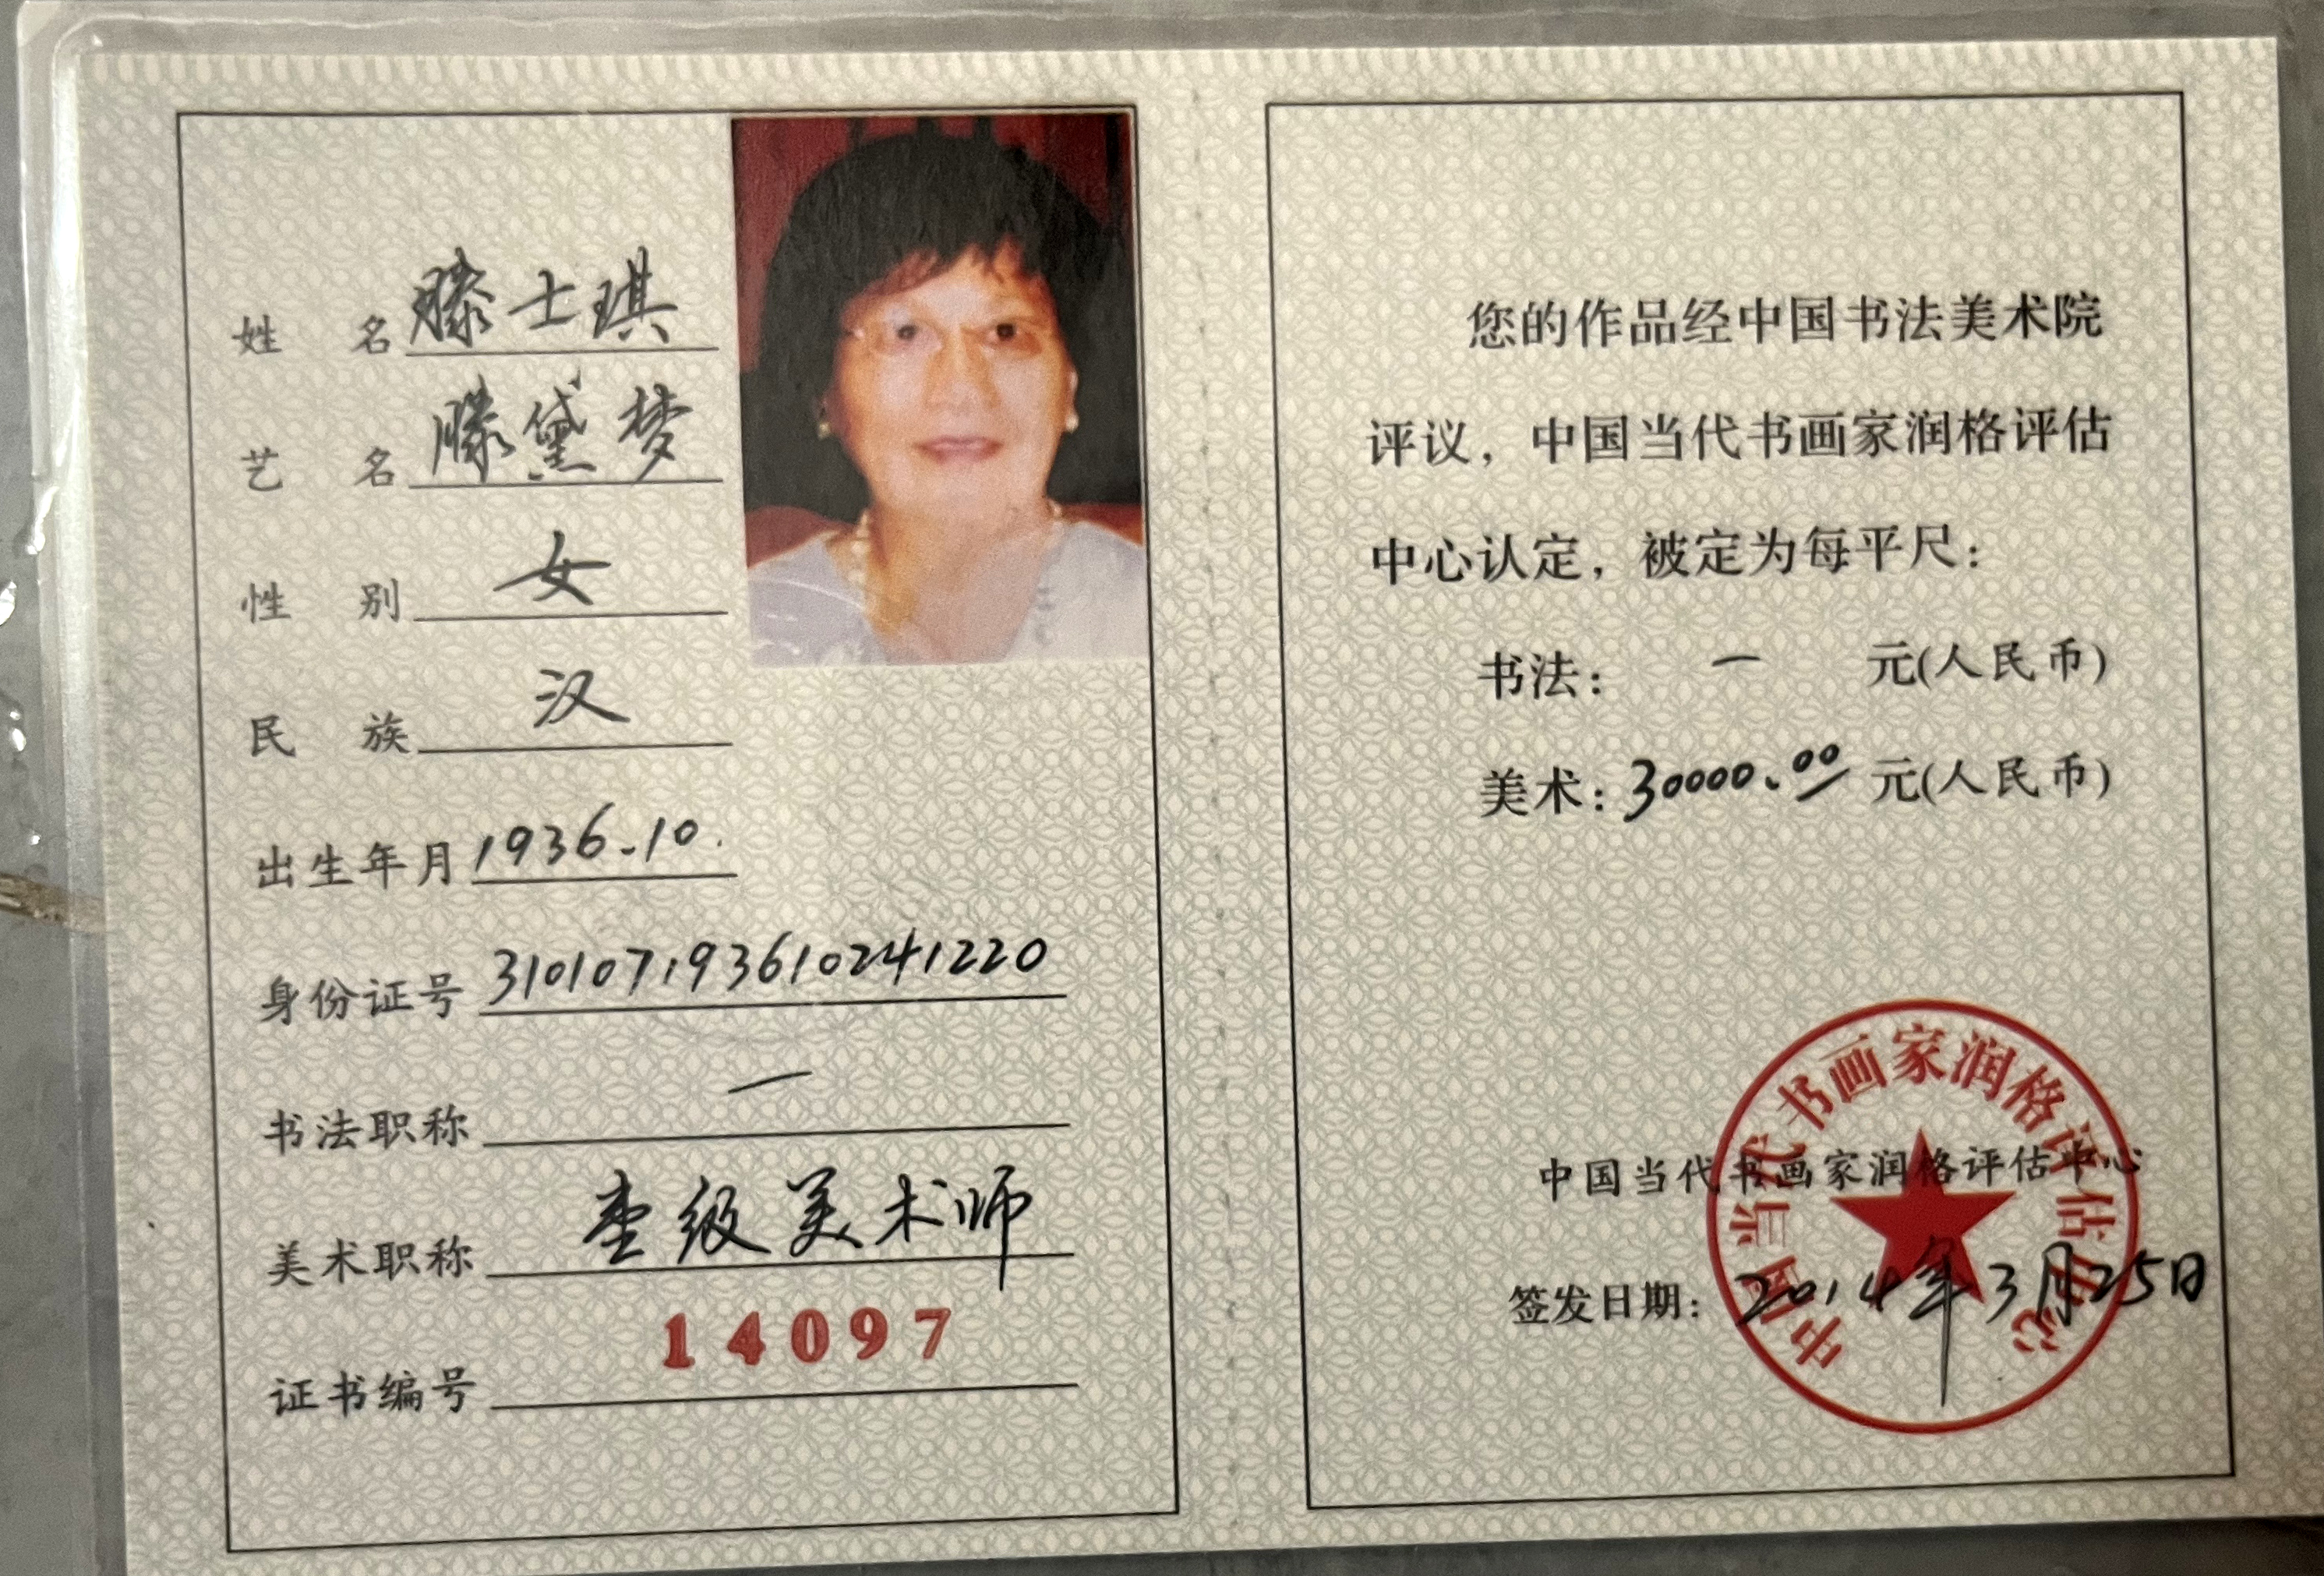 姓名 滕士琪
艺名 滕黛梦
性别 女
民族 汉
出生年月 1936.10.
身份证号 310107193610241220
书法职称 一
美术职称 壹级美术师
证书编号 14097
您的作品经中国书法美术院
评议，中国当代书画家润格评估
中心认定，被定为每平尺：
书法： 一 元(人民币)
美术：30000.00 元(人民币)
中国当代书画家润格评估中心
签发日期：2014年3月25日
中国当代书画家润格评估中心